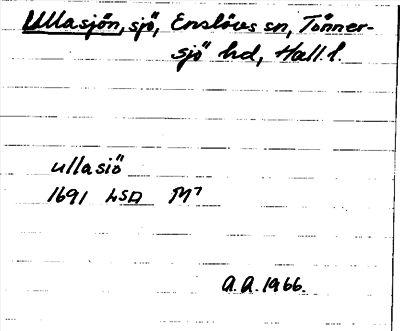 Ullasjön, sjö, Enslövs sn, Tönner-
sjö hd, Hall. l.
ullasiö
1691 LSA M⁷
A.A. 1966.